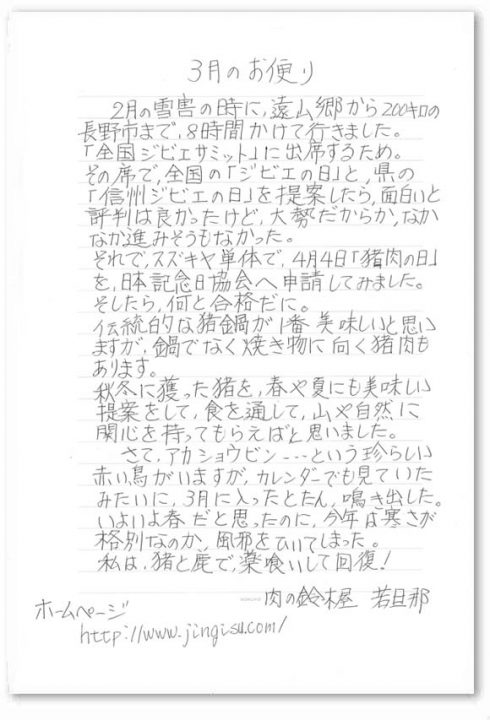 3月のお便り
2月の雪害の時に、遠山郷から200キロの
長野市まで、8時間かけて行きました。
「全国ジビエサミット」に出席するため。
その席で、全国の「ジビエの日」と、県の
「信州ジビエの日」を提案したら、面白いと
評判は良かったけど、大勢だからか、なか
なか進みそうもなかった。
それで、スズキヤ単体で、4月4日「猪肉の日」
を、日本記念日協会へ申請してみました。
そしたら、何と合格だに。
伝統的な猪鍋が1番美味しいと思い
ますが、鍋でなく焼き物に向く猪肉も
あります。
秋冬に獲った猪を、春や夏にも美味しい
提案をして、食を通して、山や自然に
関心を持ってもらえばと思いました。
さて、アカショウビン---という珍らしい
赤い鳥がいますが、カレンダーでも見ていた
みたいに、3月に入ったとたん、鳴き出した。
いよいよ春だと思ったのに、今年は寒さが
格別なのか、風邪をひいてしまった。
私は、猪と鹿で、薬喰いして回復!
肉の鈴木屋 若旦那
ホームページ
http://www.jingisu.com/